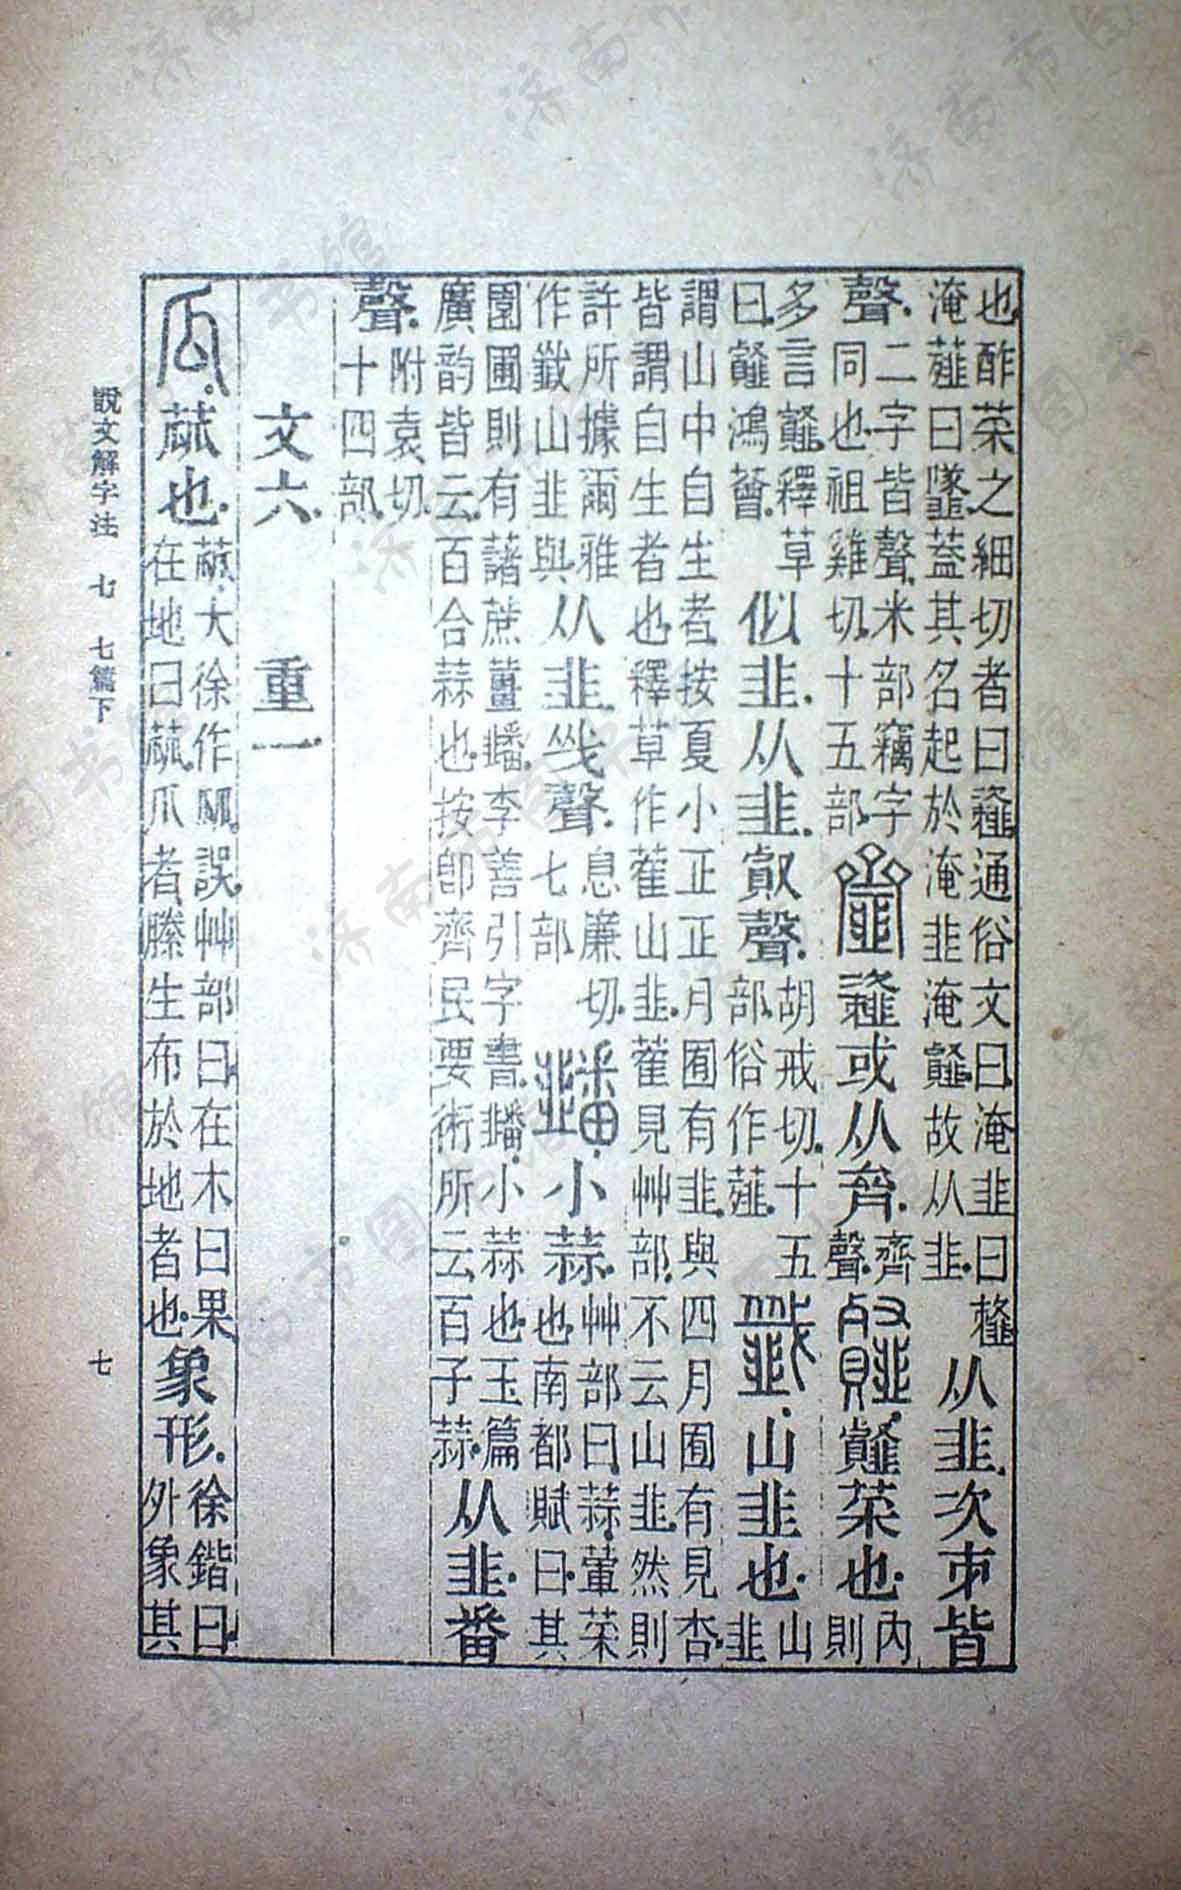 也酢菜之細切者曰䪢通俗文曰淹韭曰䪢
淹薤曰蓋其名起於淹韭淹䪥故从韭
从韭次𠂔皆
聲
二字皆聲米部竊字
同也祖雞切十五部
䪢或从齊
齊
聲
䪥菜也
内
則
多言䪥釋草
曰䪥鴻薈
似韭从韭㕡聲
胡戒切十五
部俗作薤
韱山韭也
山
韭
謂山中自生者按夏小正正月囿有韭與四月囿有見杏
皆謂自生者也釋草作藿山韭藿見艸部不云山韭然則
許所據爾雅
作韱山韭與
从韭㦰聲
息廉切
七部
小蒜
艸部曰蒜葷菜
也南都賦曰其
園圃則有藷蔗薑李善引字書小蒜也玉篇
廣韵皆云百合蒜也按卽齊民要術所云百子蒜
从韭番
聲
附袁切
十四部
文六 重一
瓜蓏也
蓏大徐作誤艸部曰在木曰果
在地曰蓏瓜者縢生布於地者也
象形
徐鍇曰
外象其
說文解字注 七 七篇下 七